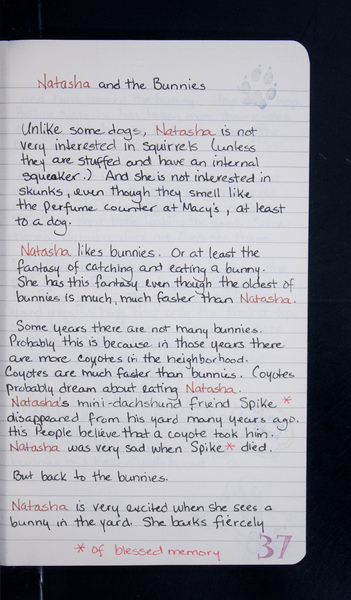 Natasha and the Bunnies
Unlike some dogs, Natasha is not
very interested in squirrels (unless
they are stuffed and have an internal
squeaker.) And she is not interested in
skunks, even though they smell like
the perfume counter at Macy's, at least
to a dog.
Natasha likes bunnies. Or at least the
fantasy of catching and eating a bunny.
She has this fantasy even though the oldest of
bunnies is much, much faster than Natasha.
Some years there are not many bunnies.
Probably this is because in those years there
are more coyotes in the neighborhood.
Coyotes are much faster than bunnies. Coyotes
probably dream about eating Natasha.
Natasha's mini-dachshund friend Spike *
disappeared from his yard many years ago.
His People believe that a coyote took him.
Natasha was very sad when Spike * died.
But back to the bunnies.
Natasha is very excited when she sees a
bunny in the yard. She barks fiercely
* of blessed memory
37